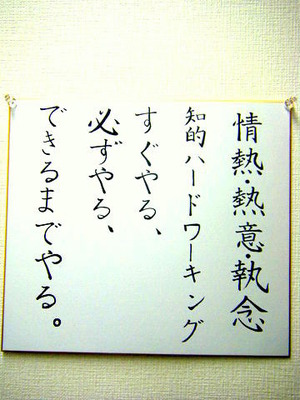 情熱・熱意・執念
知的ハードワーキング
すぐやる、
必ずやる、
できるまでやる。